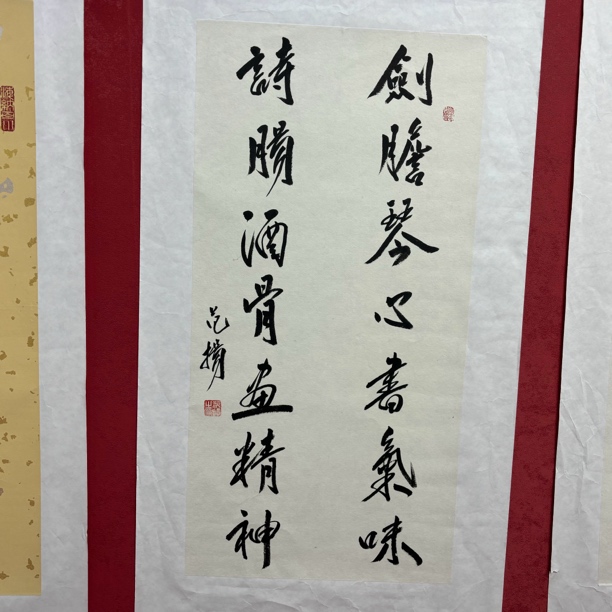 劍膽琴心書氣味
詩腸酒骨画精神